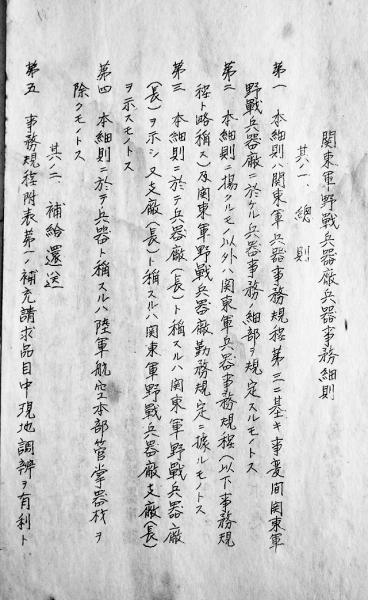 関東軍野戰兵器廠兵器事務細則
其ノ一 總則
第一 本細則ハ関東軍兵器事務規程第三ニ基キ事変間関東軍
野戰兵器廠ニ於ケル兵器事務ノ細部ヲ規定スルモノトス
第二 本細則ニ揚クルモノ以外ハ関東軍兵器事務規程(以下事務規
程ト略稱ス)及関東軍野戰兵器廠勤務規定ニ據ルモノトス
第三 本細則ニ於テ兵器廠(長)ト稱スルハ関東軍野戰兵器廠
(長)ヲ示シ又支廠(長)ト稱スルハ関東軍野戰兵器廠支廠(長)
ヲ示スモノトス
第四 本細則ニ於テ兵器ト稱スルハ陸軍航空本部管掌器材ヲ
除クモノトス
其ノ二 補給還送
第五 事務規程附表第一ノ補充請求品目中現地調辨ヲ有利ト